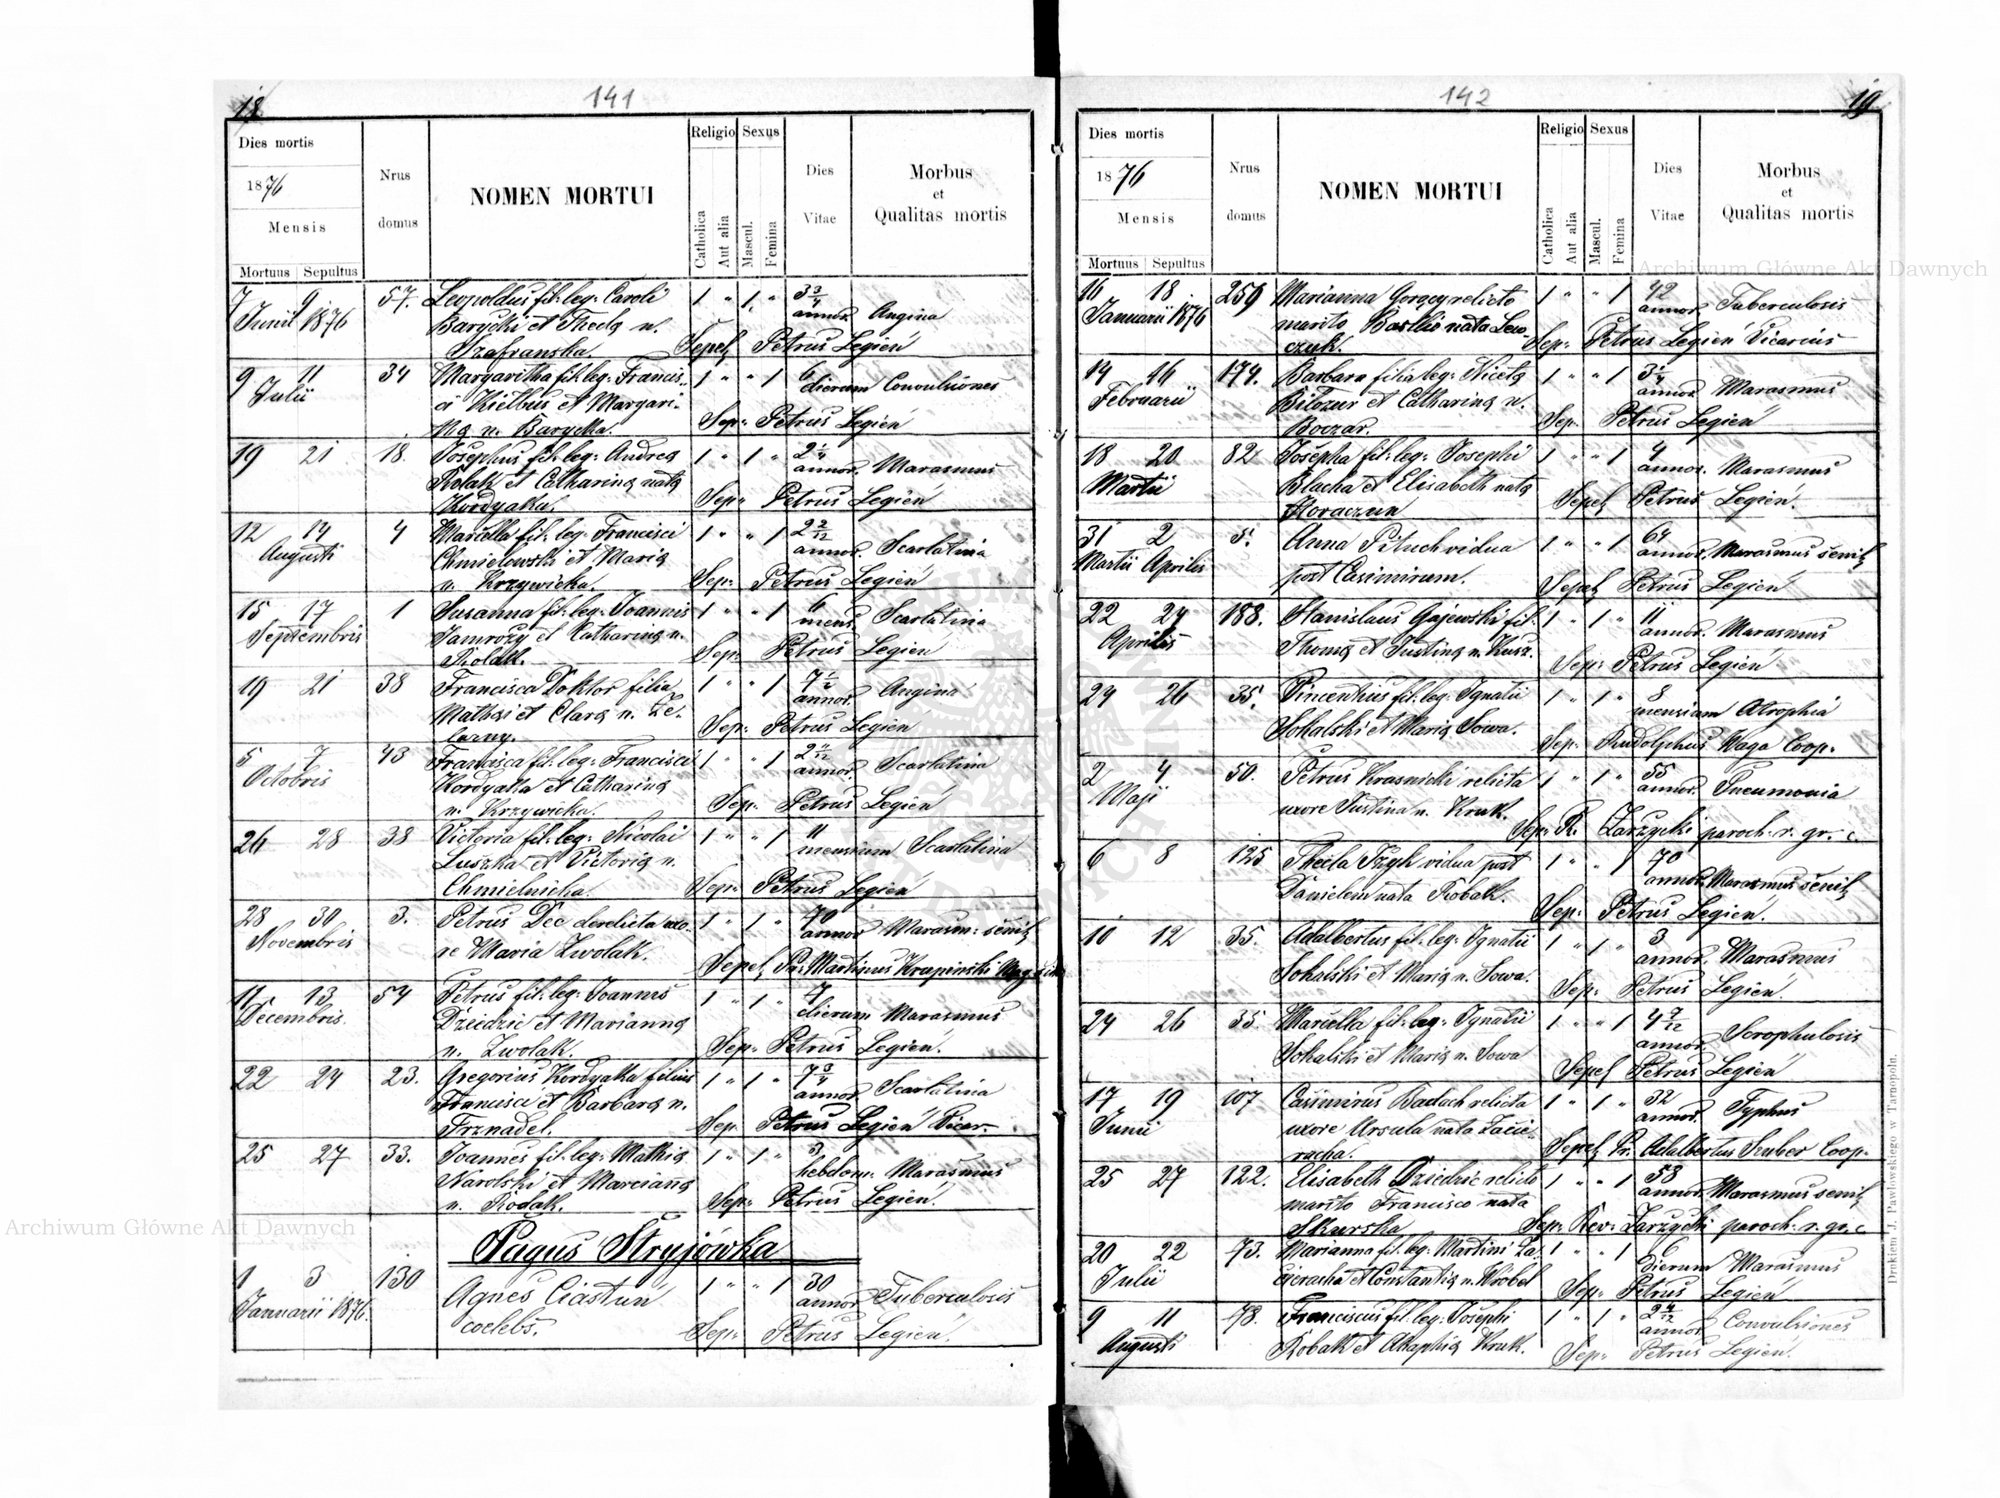 18.
141
Dies mortis
1876
Mensis
Mortuus Sepultus
Nrus domus
NOMEN MORTUI
Religio
Catholica
Aut alia
Sexus
Mascul.
Femina
Dies Vitae
Morbus et Qualitas mortis
7 9 57. Leopoldus fil: leg: Caroli 1 " 1. " 3 3/4
Junii 1876 Barycki et Thecla n. annor. Angina
Szafranska. Sepel Petrus Legień
9 11 34 Margaritha fil: leg: Francis- 1 " " 1 6
Julii ci Kielbus et Margari- dierum Convulsiones
tha n. Barycka. Sep: Petrus Legień
19 21 18. Josephus fil: leg: Andrea 1 " 1 " 2 1/4
Rolak et Catharina nata annor. Marasmus
Kordyaka. Sep: Petrus Legień
12 14 4 Marcella fil: leg: Francisci 1 " " 1 2 2/12
Augusti Chmielowski et Maria annor. Scarlatina
n. Krzywicka. Sep: Petrus Legień
15 17 1 Susanna fil: leg: Joannis 1 " " 1 6
Septembris Jamrozy et Catharina n. mens. Scarlatina
Rolak. Sep: Petrus Legień
19 21 38 Francisca Doktor filia 1 " " 1 7 1/2
Mathai et Clara n. Ze- annor. Angina
lazny. Sep: Petrus Legień
5 7 43 Francisca fil: leg: Francisci 1 " " 1
Octobris Kordyaka et Catharina annor. Scarlatina
n. Krzywicka. Sep: Petrus Legień
26 28 38 Victoria fil: leg: Nicolai 1 " " 1 11
Luszka et Victoria n. mensium Scarlatina
Chmielnicka. Sep: Petrus Legień
28 30 3. Petrus Dec derelicta uxo- 1 " 1 " 70
Novembris re Maria Zwolak. annor Marasm: senil
Sepel Pr. Martinus Krapinski
11 13 54 Petrus fil: leg: Joannis 1 " 1 " 7
Decembris. Dziedzic et Marianna dierum Marasmus
n. Zwolak. Sep: Petrus Legien.
22 24 23. Gregorius Kordyaka filius 1 " 1 " 7 3/4
Francisci et Barbara n. annor. Scarlatina
Trznadel. Sep. Petrus Legień Vicar.
25 27 33. Joannes fil: leg: Mathia 1 " 1 " 3
Narolski et Marciana hebdom: Marasmus
n. Rodak. Sep: Petrus Legień.
Pagus Stryjówka
1 3 130 Agnes Ciastuń 1 " " 1 30
Januarii 1876. coelebs. annor Tuberculosis
Sep: Petrus Legień.
142
19
Dies mortis
1876
Mensis
Mortuus Sepultus
Nrus domus
NOMEN MORTUI
Religio
Catholica
Aut alia
Sexus
Mascul.
Femina
Dies Vitae
Morbus et Qualitas mortis
16 18 259 Marianna Gorgoy relicto 1 " " 1 42
Januarii 1876 marito Basilio nata Lew- annor. Tuberculosis
czuk. Sep: Petrus Legień Vicarius
14 16 174. Barbara filia leg: Niceta 1 " " 1 3 1/4
Februarii Bilozur et Catharina n. annor. Marasmus
Boczar. Sep: Petrus Legień
18 20 82 Josepha fil: leg: Josephi 1 " " 1 4
Martii Blacha et Elisabeth nata annor. Marasmus
Sepel Petrus Legień.
31 2 5. Anna Pituch vidua 1 " " 1 64
Martii Aprilis post Casimirum. annor. Marasmus senil
Sepel Petrus Legień
22 24 188. Stanislaus Gajewski fil: 1 " 1 " 11
Aprilis Thoma et Justina n. Kusz. annor. Marasmus
Sep: Petrus Legień
24 26 35. Vincentius fil: leg: Ignatii 1 " 1 " 8
Sokalski et Maria Sowa. mensium Atrophia
Sep: Rudolphus Waga Coop.
2 4 50. Petrus Krasnicki relicta 1 " 1 " 55
Maji uxore Justina n. Kruk. annor. Pneumonia
Sep: R. Zarzycki paroch. r. gr. c.
6 8 125 Thecla Fryk vidua post 1 " " 1 70
Danielem nata Robak. annor. Marasmus senil
Sep: Petrus Legień.
10 12 35. Adalbertus fil: leg: Ignatii 1 " 1 " 3
Sokalski et Maria n. Sowa. annor. Marasmus
Sep: Petrus Legień.
24 26 35 Marcella fil: leg: Ignatii 1 " " 1 4 7/12
Sokalski et Maria n. Sowa annor. Scrophulosis
Sepel Petrus Legień
17 19 107 Casimirus Badach relicta 1 " 1 " 32
Junii uxore Ursula nata Zacie- annor. Typhus
racha. Sepel Pr. Adalbertus Szuber Coop.
25 27 122. Elisabeth Dziedzic relicto 1 " " 1 58
marito Francisco nata annor. Marasmus senil
Skurska Sep: Rev: Zarzycki paroch: r. gr. c
20 22 73. Marianna fil: leg: Martini Za- 1 " " 1 6
Julii cieracha et Constantia n. Wróbel dierum Marasmus
Sep: Petrus Legień
9 11 78. Franciscus fil: leg: Josephi 1 " 1 " 2 4/12
Augusti Robak et Ahaphia Kruk. annor Convulsiones
Sep: Petrus Legień.
Drukiem J. Pawłowskiego w Tarnopolu.
Archiwum Główne Akt Dawnych
Archiwum Główne Akt Dawnych